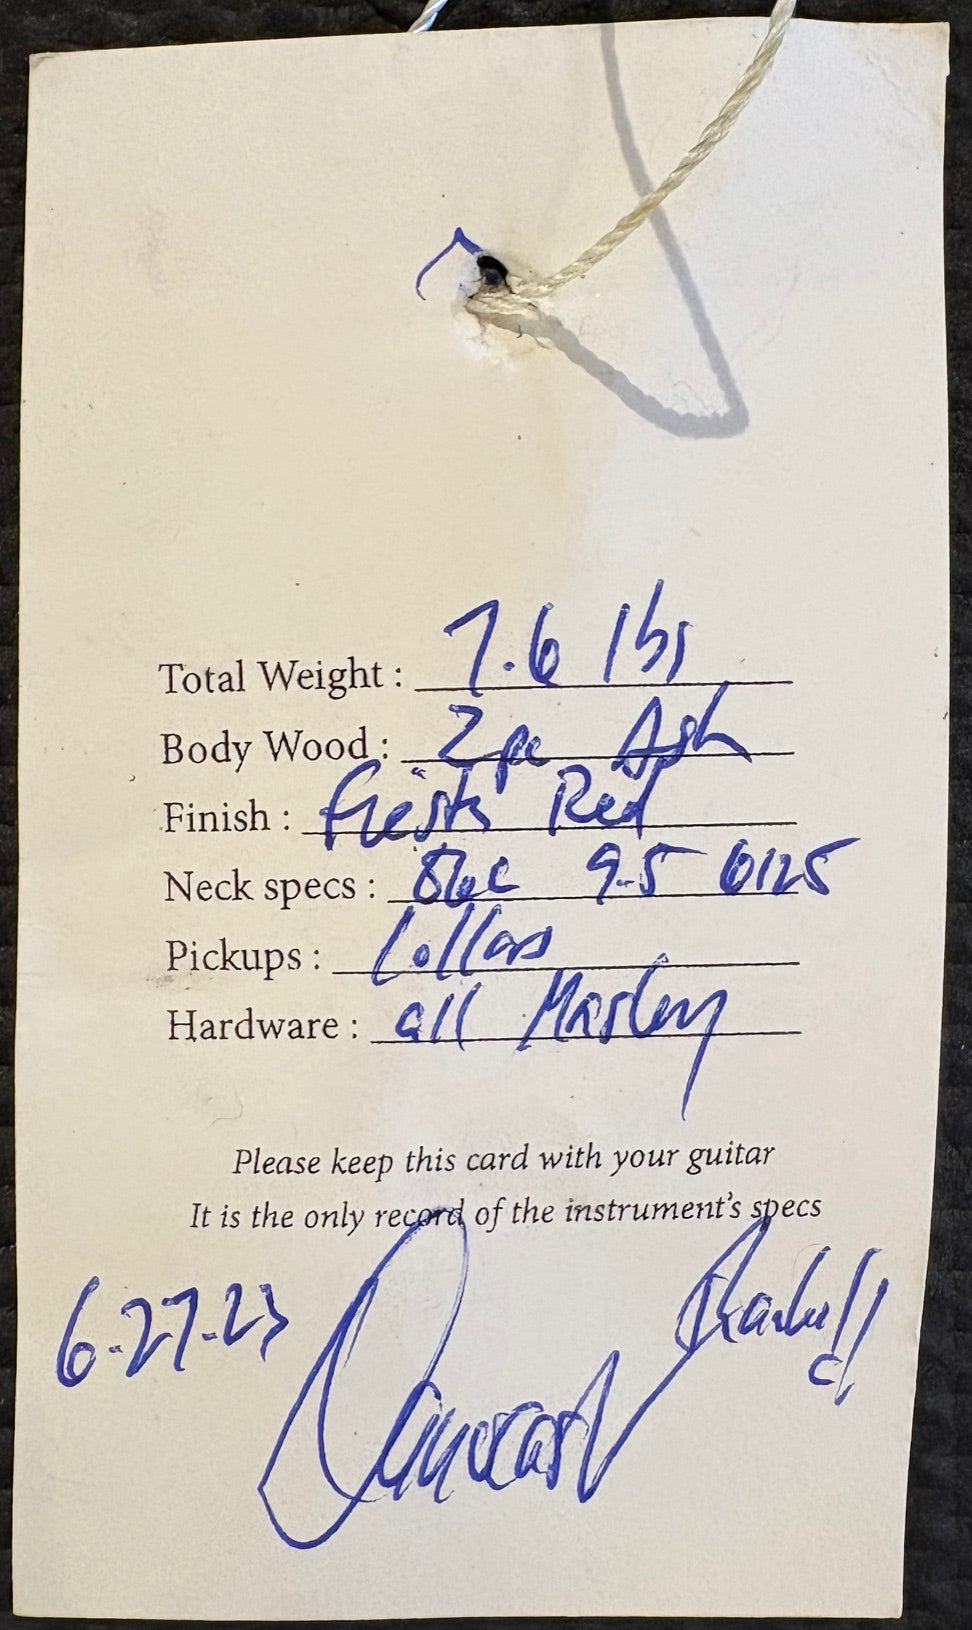 Total Weight : 7.6 lbs
Body Wood : 2 pc Ash
Finish : Fiesta Red
Neck specs : 9.5 6125
Pickups : Lollars
Hardware : all
Please keep this card with your guitar
It is the only record of the instrument's specs
6-27-23